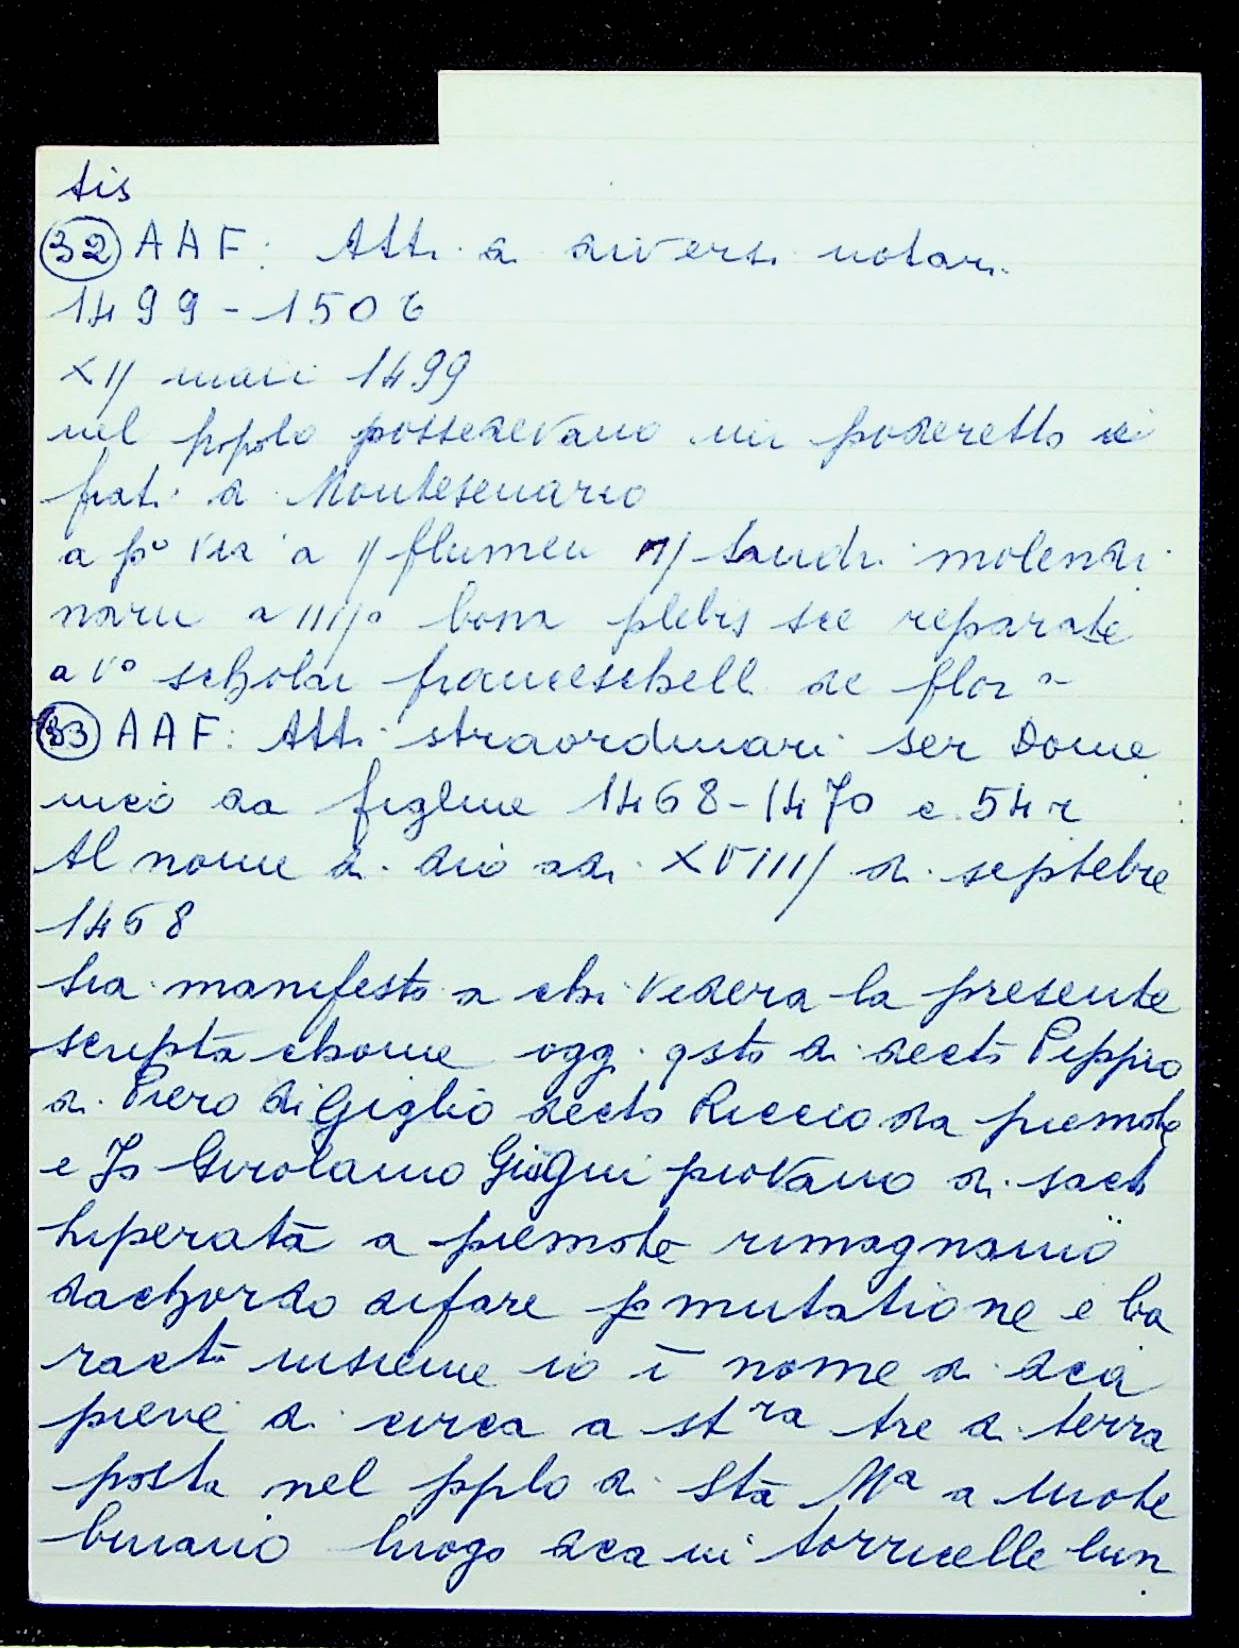 tis
32 AAF: Atti di diversi notari
1499-1506
XII maii 1499
nel popolo possedevano un poderetto i
frati di Montesenario
a p° via a II flumen III Sandri molendi
narii a IIII° bona plebis sce reparate
a V° scholai francieschelli de flor a
33 AAF: Atti straordinari ser Dome
nico da figline 1468-1470 c. 54r
Al nome di dio adi XVIIII di septebre
1468
Sia manifesto a chi vedera la presente
scripta chome oggi qsto di decto Pippo
di Piero di Giglio decto Riccio da piemote
e Jo Girolamo Giugni piovano di sacta
liperata a piemote rimagnamo
dachordo difare pmutatione e ba
racto insieme io ī nome di dca
pieve di circa a stra tre di terra
posta nel pplo di Sta Ma a Mote
buiano luogo dca ui torricelle lun